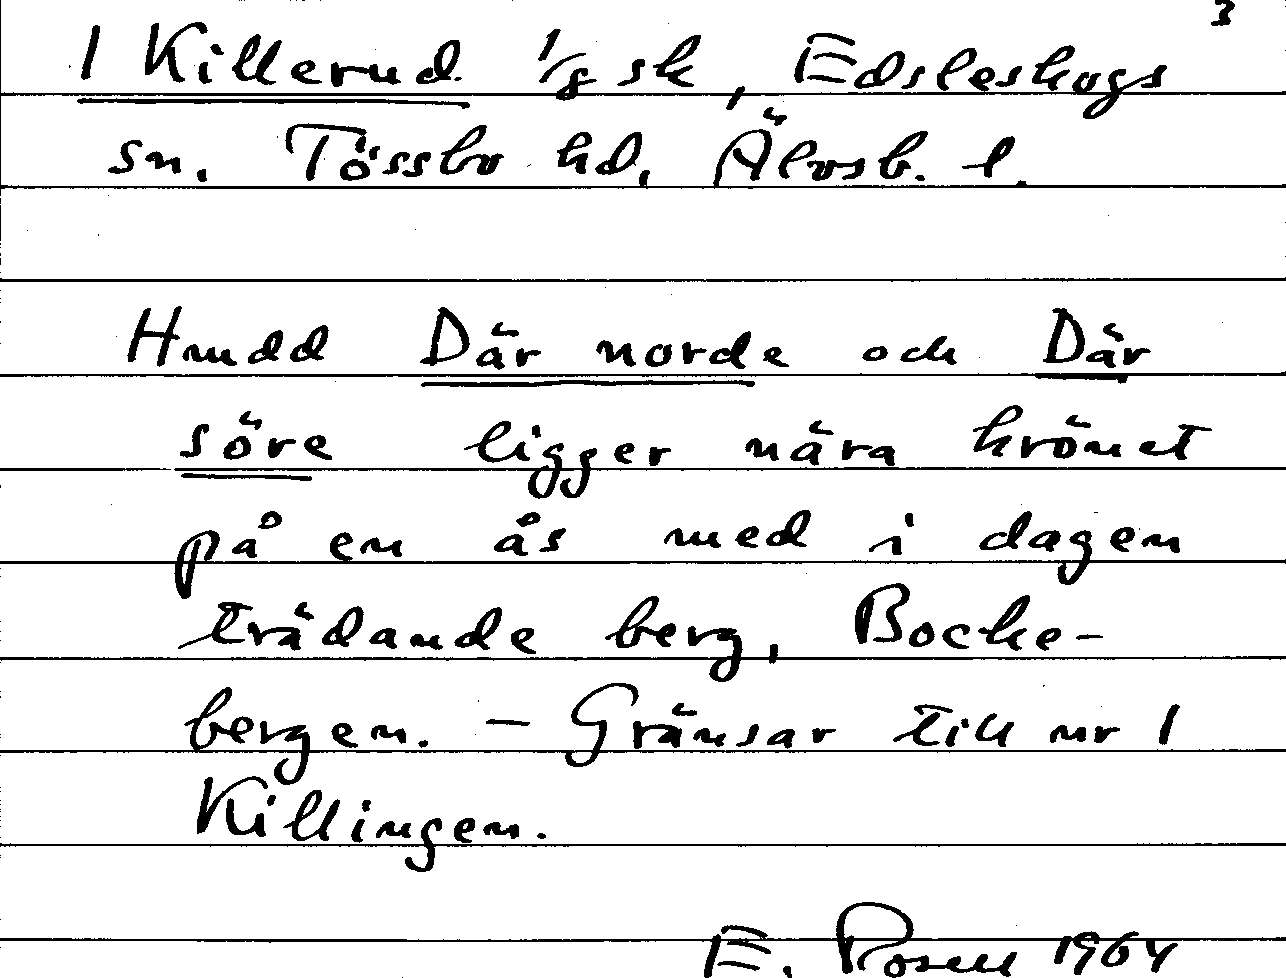 3
1 Killerud 1/8 sk, Edsleskogs
sn. Tössbo hd, Älvsb. l.
Hmdd Där norde och Där
söre ligger nära krönet
på en ås med i dagen
trädande berg, Bocke-
bergen. – Gränsar till nr 1
Killingen.
E. Rosell 1964